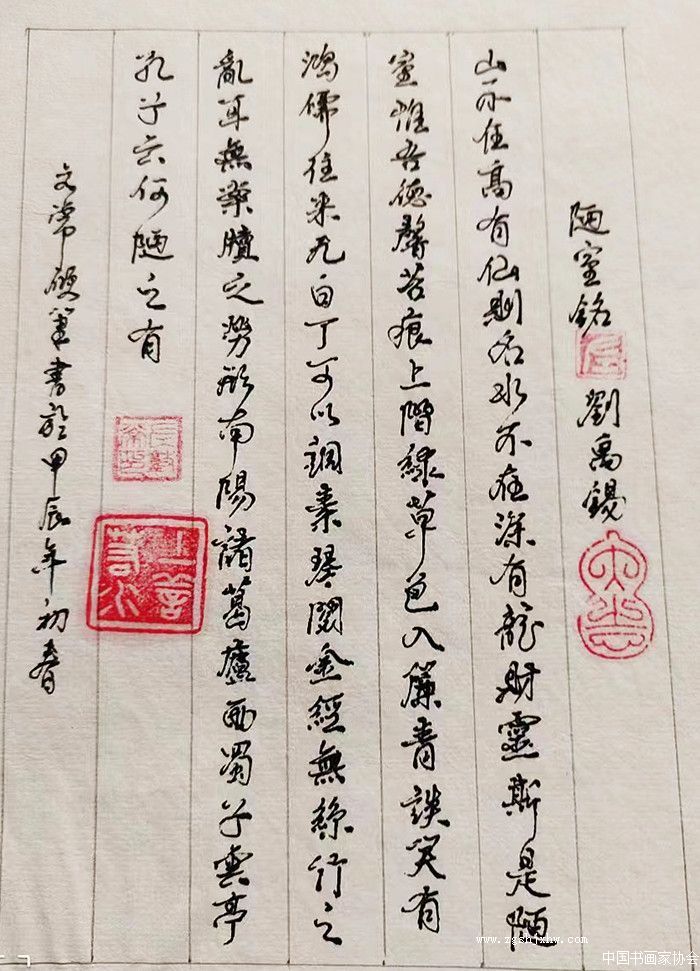 陋室銘 劉禹錫
山不在高有仙則名水不在深有龍則靈斯是陋
室惟吾德馨苔痕上階綠草色入簾青談笑有
鴻儒往来无白丁可以調素琴閱金經無絲竹之
亂耳無案牘之勞形南陽諸葛廬西蜀子雲亭
孔子云何陋之有
上善若水
文常硬筆書於甲辰年初春
www.zgshjxhw.com
中国书画家协会